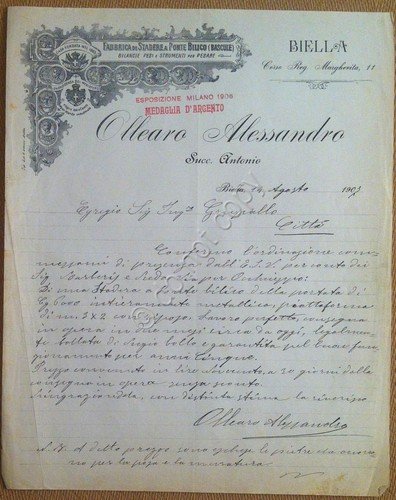 FABBRICA DI STADERE A PONTE BILICO (BASCULE)
BILANCIE, PESI E STRUMENTI PER PESARE
BIELLA
Corso Reg. Margherita, 11
ESPOSIZIONE MILANO 1906
MEDAGLIA D'ARGENTO
Ollearo Alessandro
Succ. Antonio
Biella, 14 Agosto 1907
Egregio Sig Ing.e
Città
Confermo l'ordinazione com-
messami di presenza dall'E.S.V. per conto dei
Sig. Barberis e
Di una Stadera a ponte bilico della portata di
Cg 6000 intieramente metallica, piattaforma
di m. 3x2 con lavoro perfetto, consegna
in opera in due mesi circa da oggi, legalmen-
te bollata da Regio bollo e garantita pel buon fun-
zionamento per anni cinque.
Prezzo convenuto in lire a 30 giorni dalla
consegna in opera senza sconto.
Ringraziandola, con distinta stima la riverisco
Ollearo Alessandro
N.B. A detto prezzo sono escluse le pietre che occorro-
no per la posa e la muratura